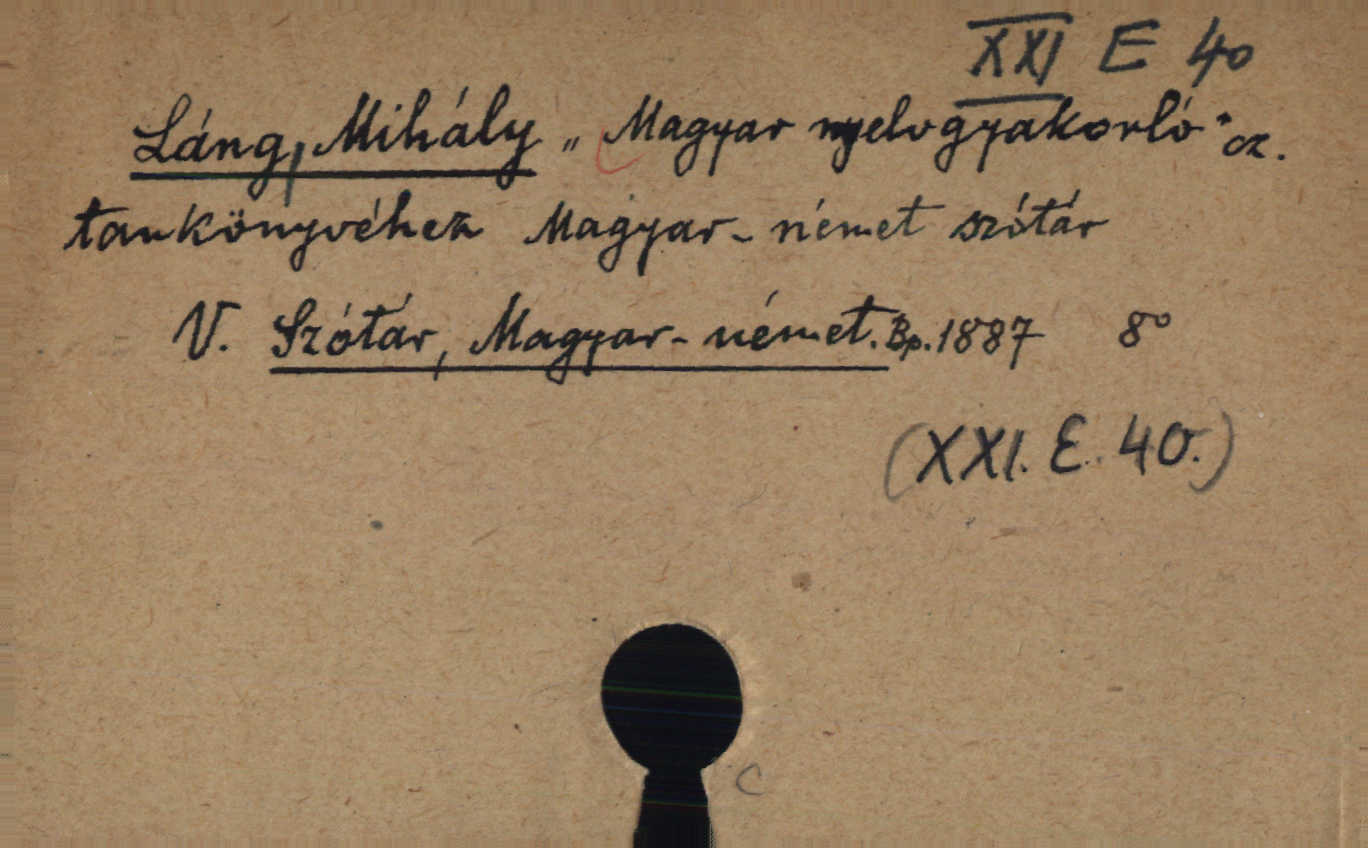 XXI E 40
Láng, Mihály „Magyar nyelvgyakorló" cz.
tankönyvéhez Magyar-német szótár
V. Szótár, Magyar-német. Bp. 1887 8°
(XXI. E. 40.)